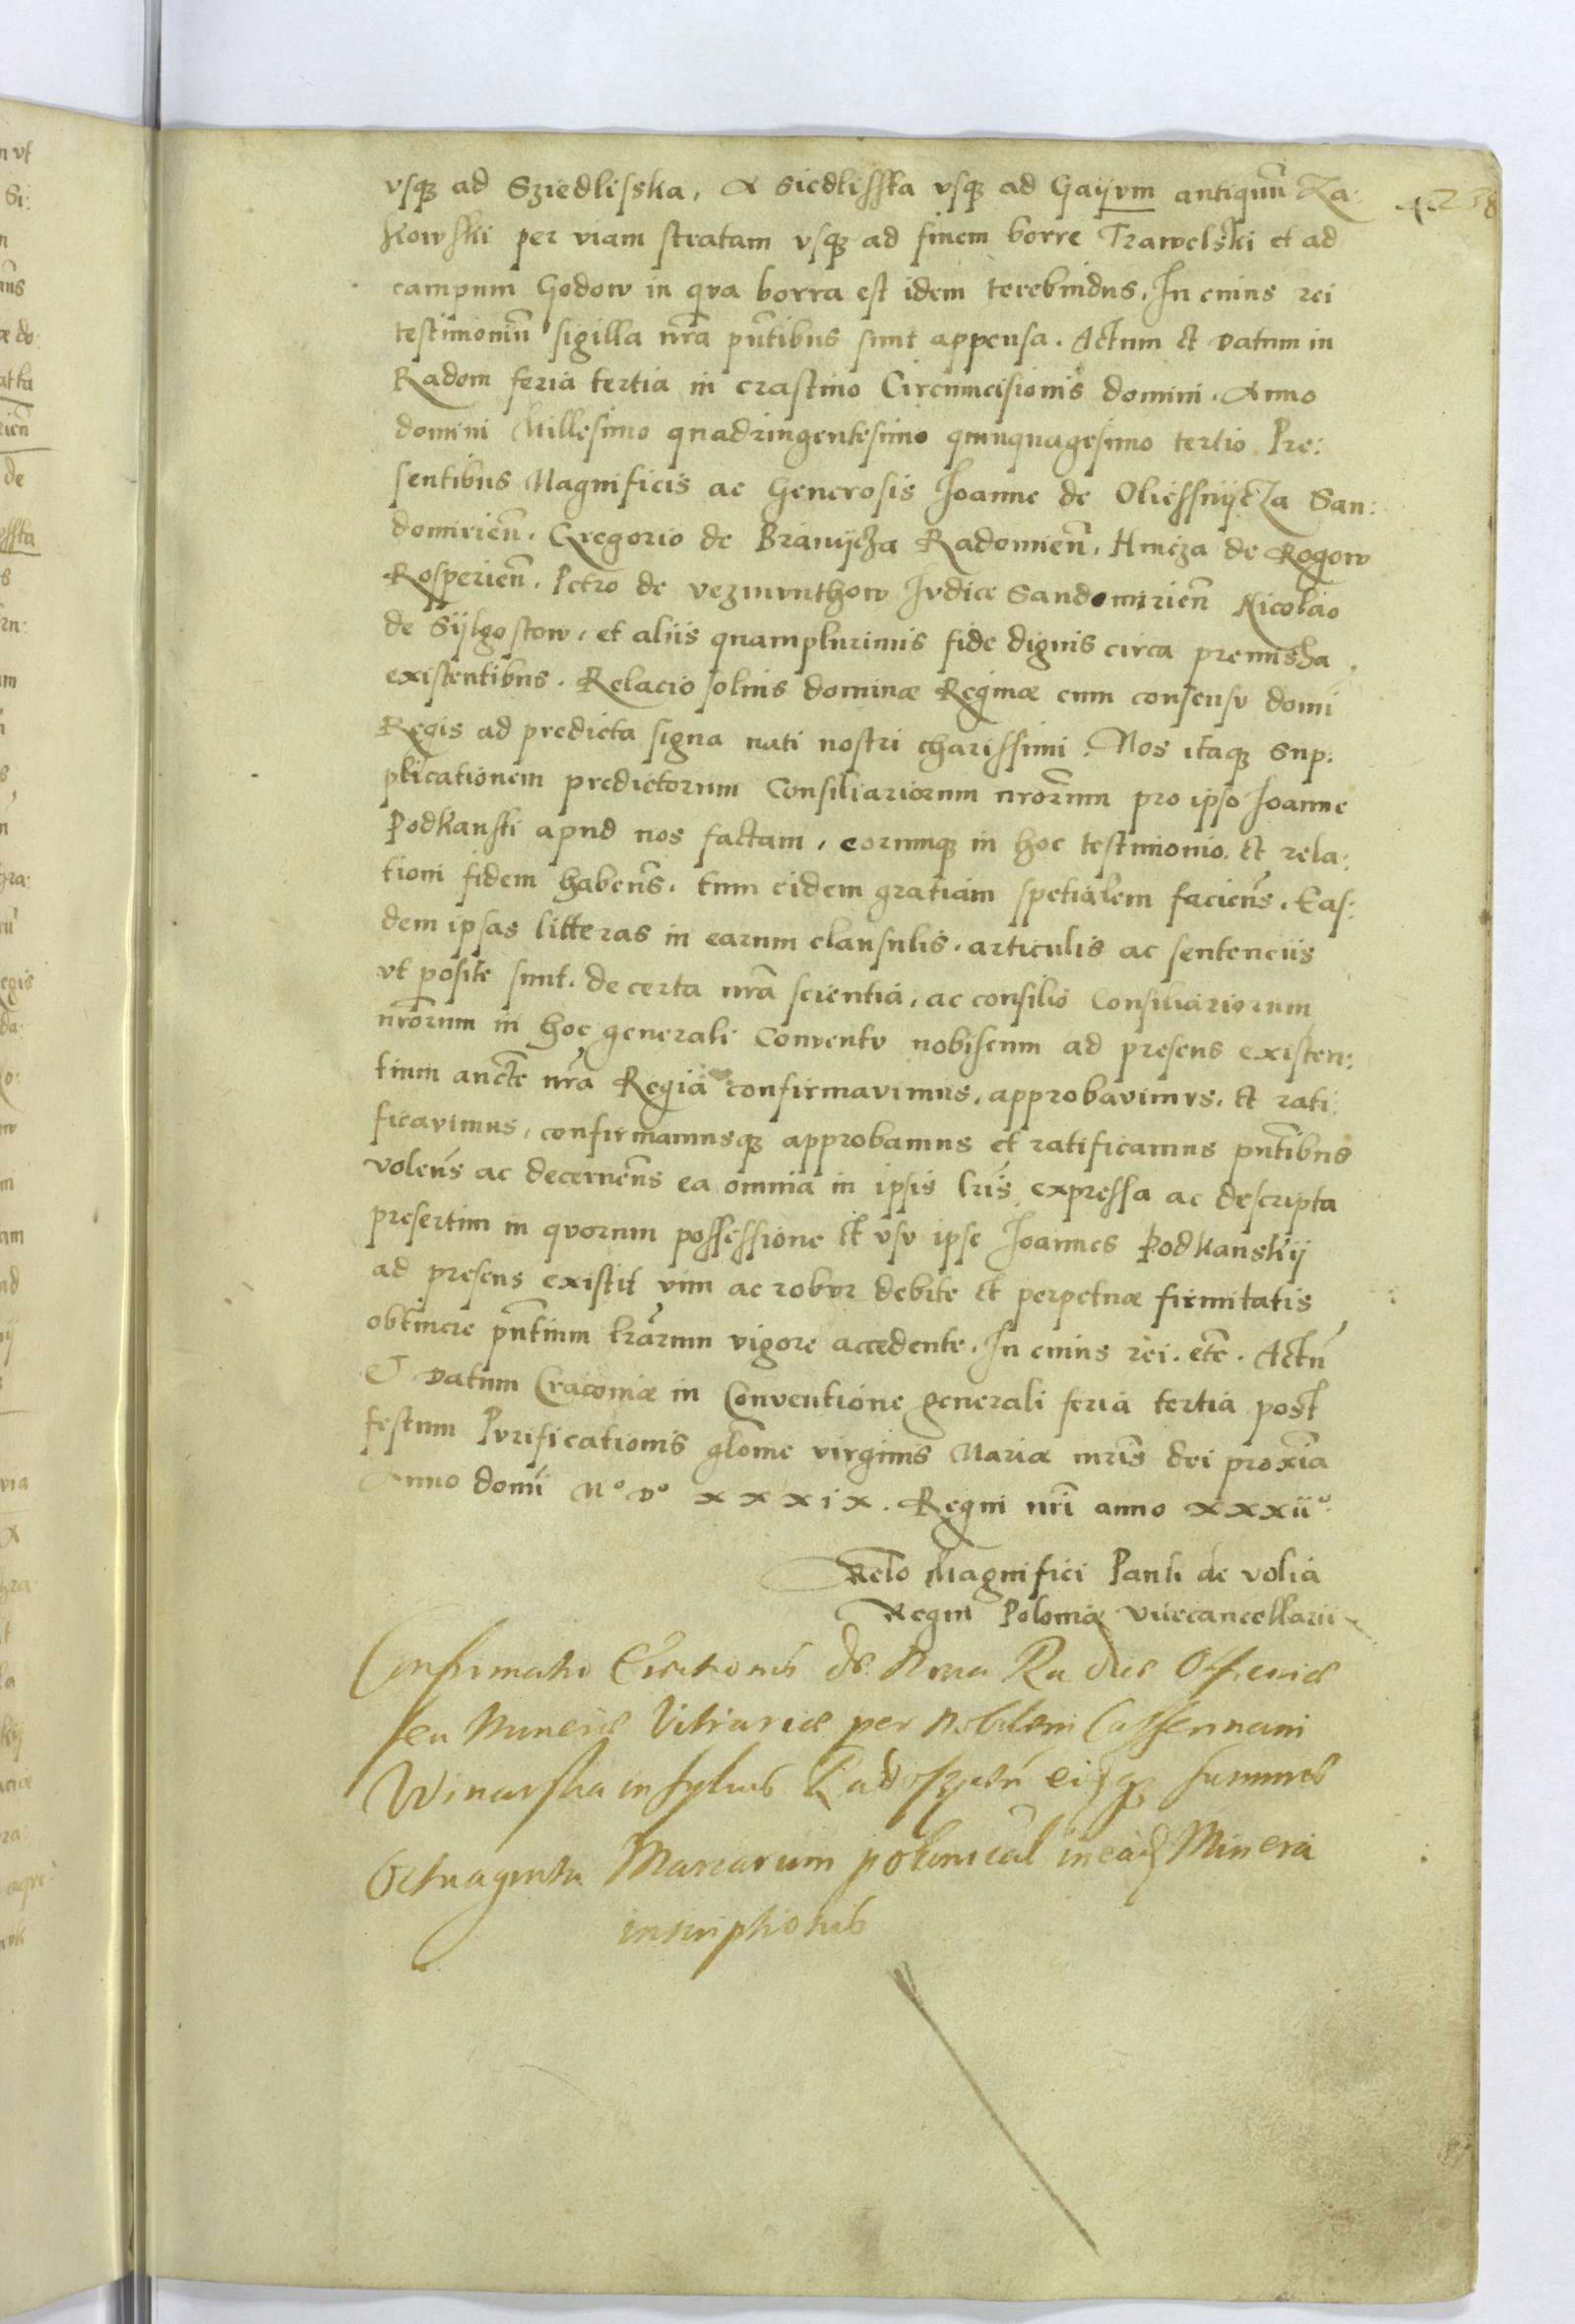 238
vsq₃ ad Sziedlisska, A Siedlisska vsq₃ ad Gayvm antiquū Za:
kowski per viam stratam vsq₃ ad finem borre Trawelski et ad
campum Godow in qva borra est idem terebindus, In cuius rei
testimoniū sigilla nr̃a pñtibus sunt appensa. Actum et Datum in
Radom feria tertia in crastino Circumcisionis domini. Anno
domini Millesimo quadringentesimo quinquagesimo tertio. Pre:
sentibus Magnificis ac Generosis Joanne de Oliessnijcza San:
domirieñ. Gregorio de Branijcza Radomieñ. Hincza de Rogow
Rosperieñ. Petro de vezmvnthow Jvdice Sandomirieñ Nicolao
de Syłgostow, et aliis quamplurimis fide dignis circa premissa
existentibus. Relacio solius dominæ Reginæ cum consensv domi
Regis ad predicta signa nati nostri charissimi. Nos itaq₃ Sup:
plicationem predictorum Consiliariorum nr̃orum pro ipso Joanne
Podkanski apud nos factam, eorumq₃ in hoc testimonio et rela:
tioni fidem habeñs. tum eidem gratiam spetialem facieñs. Eas:
dem ipsas litteras in earum clausulis. articulis ac sentenciis
vt posite sunt. de certa nr̃a scientia, ac consilio Consiliariorum
nr̃orum in hoc generali Conventv nobiscum ad presens existen:
tium aucte nr̃a Regia confirmavimus, approbavimvs. et rati:
ficavimus, confirmamusq₃ approbamus et ratificamus pñtibus
voleñs ac decerneñs ea omnia in ipsis lr̃is expressa ac descripta
presertim in qvorum possessione et vsv ipse Joannes Podkanskij
ad presens existit vim ac robvr debite et perpetuæ firmitatis
obtinere pñtium lr̃arum vigore accedente. In cuius rei. etc̃. Actũ
et Datum Cracoviæ in Conventione generali feria tertia post
festum Pvrificationis glõme virginis Mariæ mr̃is dei proxĩa
Anno domĩ Mº Dº xxxix. Regni nr̃i anno xxxiiº.
Relo Magnifici Pauli de volia
Regni Poloniæ vicecancellarii
Confirmatio Erectionis de Officinæ
seu Mineræ Vitriariæ per Nobilem
Winarska in sylvis summæ
Octuaginta Marcarum polonical in ead Minera
inscriptionis